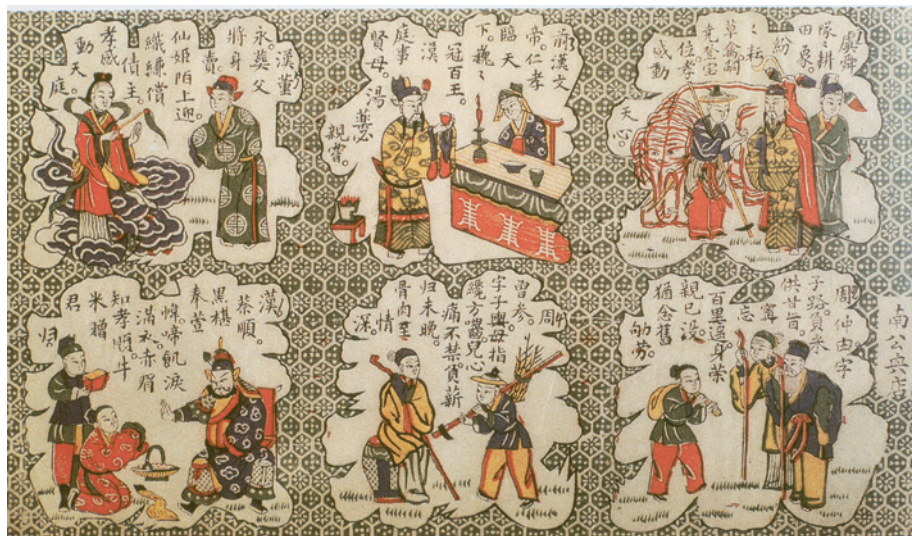 虞舜
隊〻耕
田象。
紛
〻耘
草禽嗣
堯登宝
位孝
感動
天心。
前漢文
帝。仁孝
臨天
下。巍〻
冠百王。
漢
庭事
賢母。
湯藥必
親嘗。
漢董
永葬父
將身賣
仙姬陌上迎。
織縑償
債主。
孝感
動天庭。
南公
周仲由字
子路負米
供甘旨。
寧忘
百里遥身荣
親已没。
猶念舊
劬劳。
周
曾参。
字子輿母指
纔方嚙兒心
痛不禁負薪
归未晚。
骨肉至
情深。
漢
蔡順。
黑椹
奉萱
幃啼飢淚
滿衣赤眉
知孝順。牛
米贈
君归